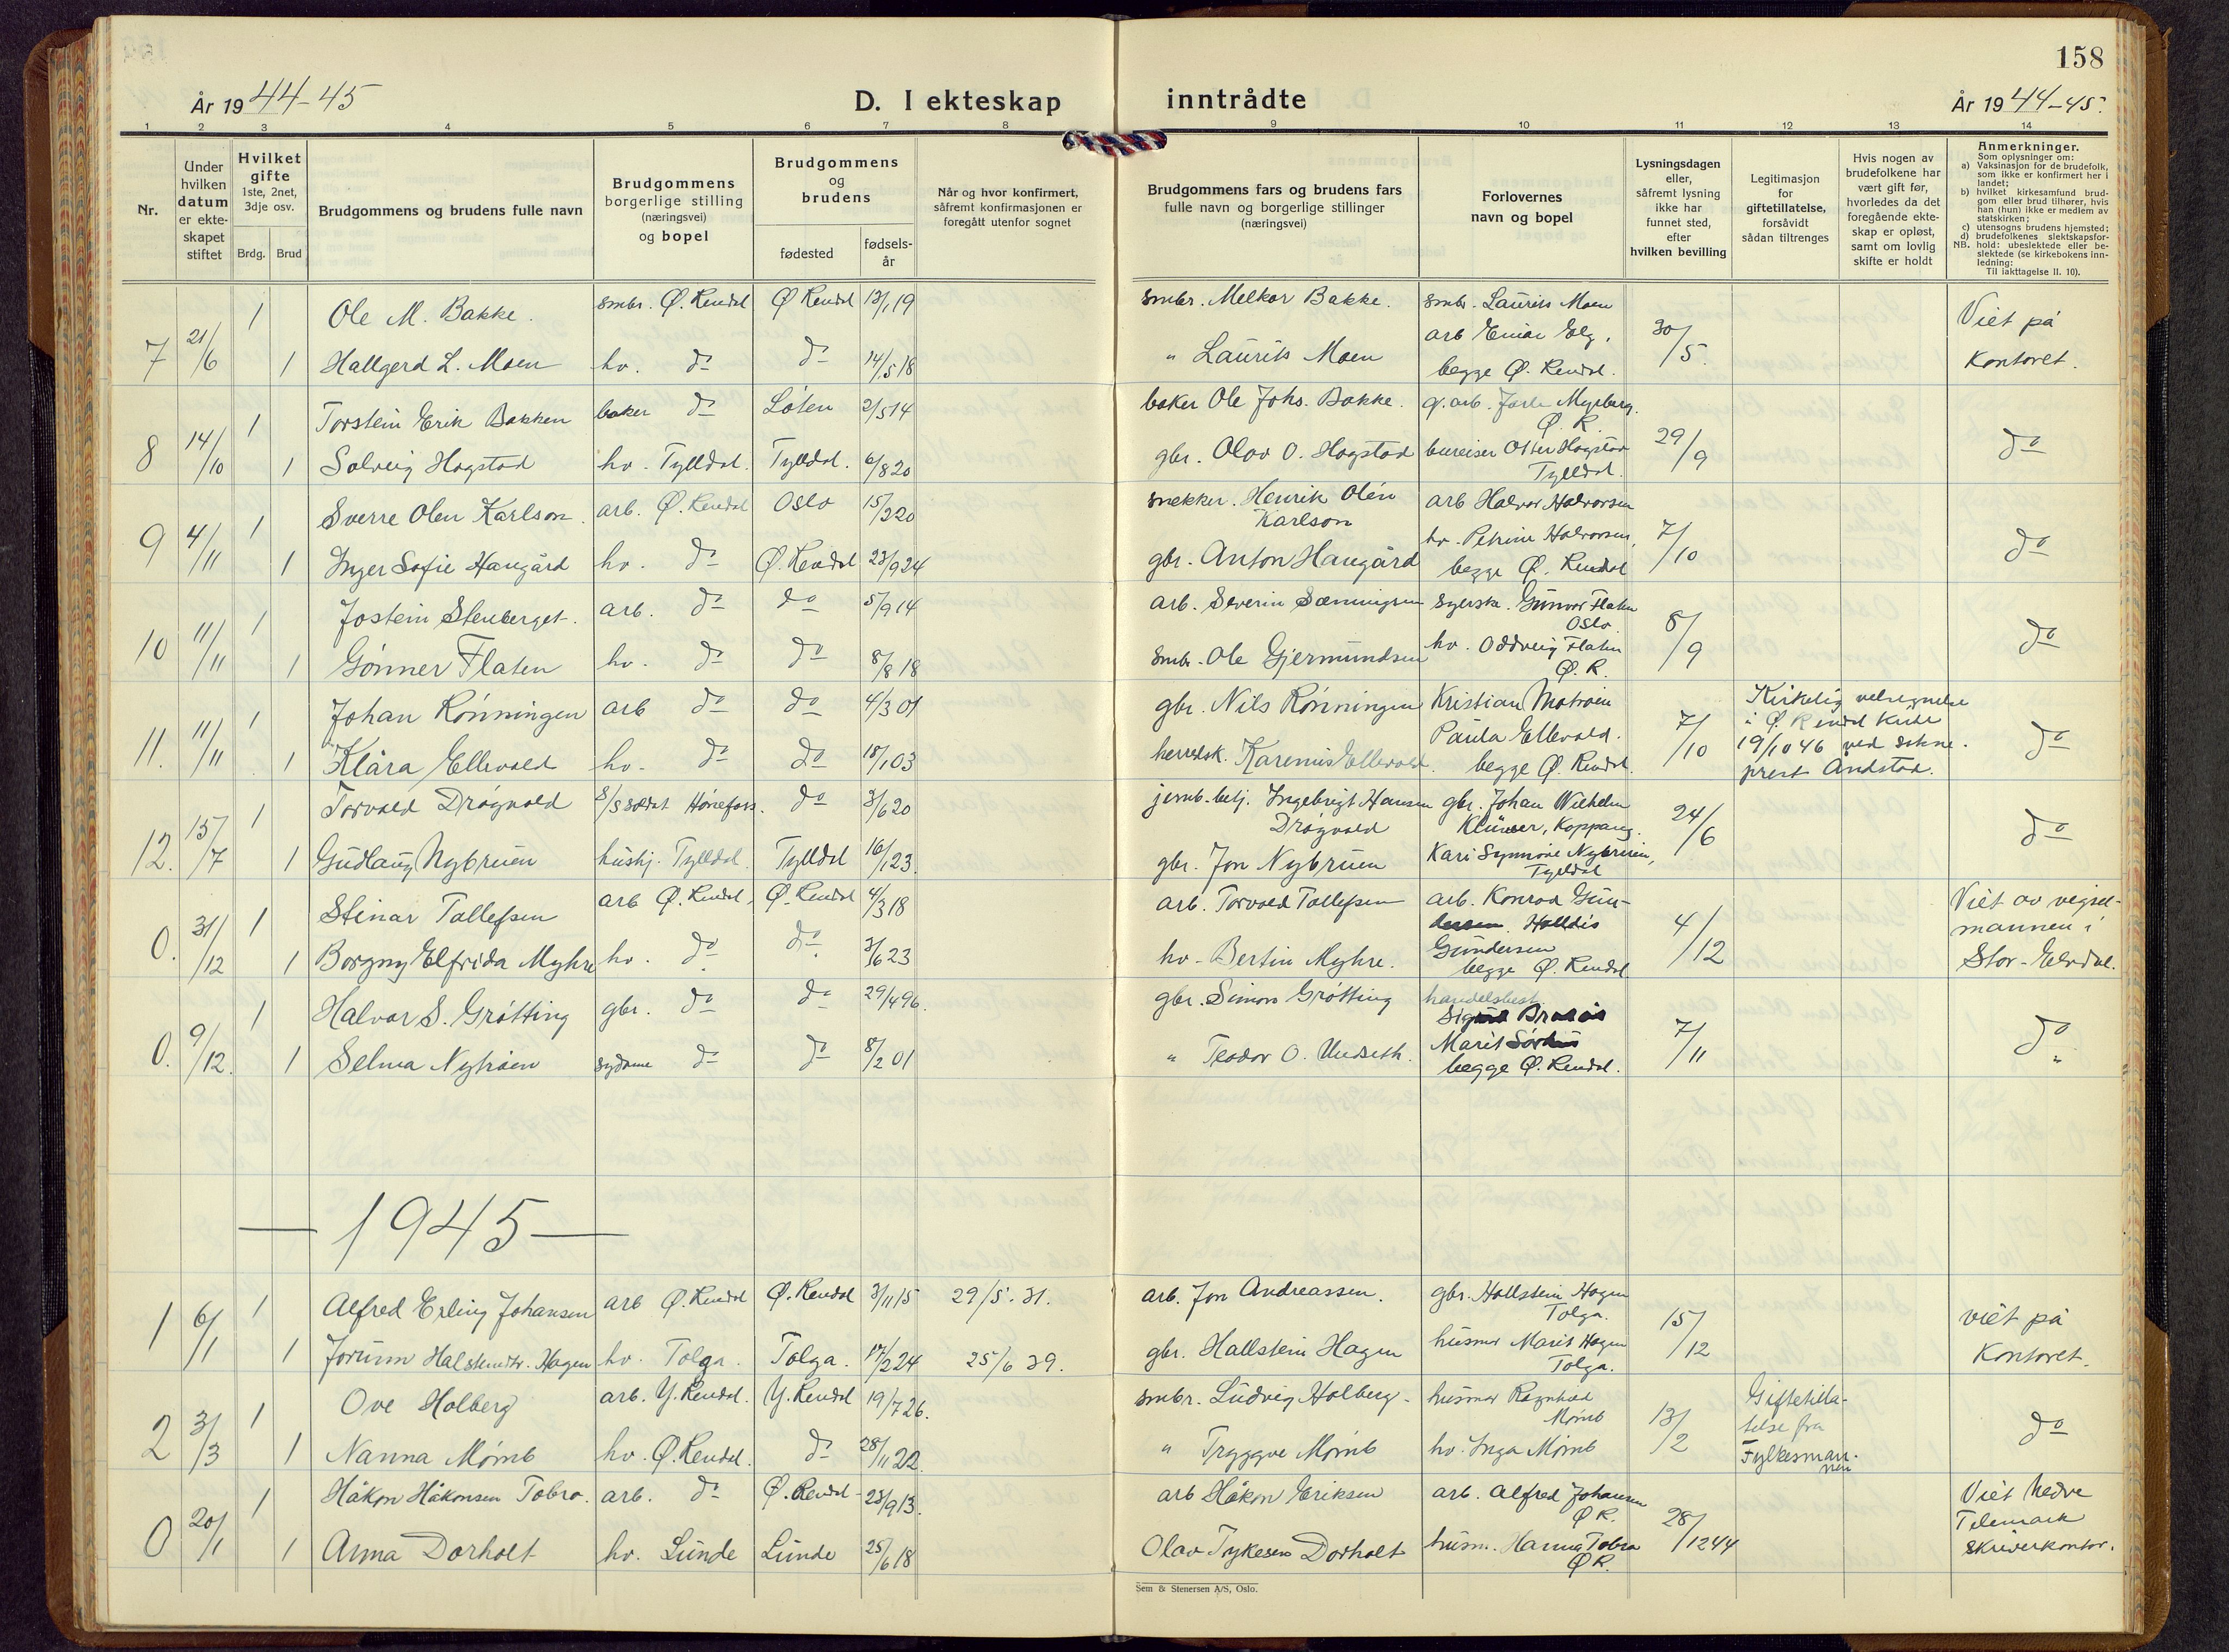 158
År 1944-45
D. I ekteskap inntrådte
År 1944-45.
1 2 3 4 5 6 7 8 9 10 11 12 13 14
Nr.
Under hvilken datum er ekte-skapet stiftet
Hvilket gifte 1ste, 2net, 3dje osv.
Brdg. Brud
Brudgommens og brudens fulle navn
Brudgommens borgerlige stilling (næringsvei) og bopel
Brudgommens og brudens
fødested
fødsels-år
Når og hvor konfirmert, såfremt konfirmasjonen er foregått utenfor sognet
Brudgommens fars og brudens fars fulle navn og borgerlige stillinger (næringsvei)
Forlovernes navn og bopel
Lysningsdagen eller, såfremt lysning ikke har funnet sted, efter hvilken bevilling
Legitimasjon for giftetillatelse, forsåvidt sådan tiltrenges
Hvis nogen av brudefolkene har vært gift før, hvorledes da det foregående ekte-skap er opløst, samt om lovlig skifte er holdt
Anmerkninger.
Som oplysninger om:
a) Vaksinasjon for de brudefolk, som ikke er konfirmert her i landet;
b) hvilket kirkesamfund brud-gom eller brud tilhører, hvis han (hun) ikke er medlem av statskirken;
c) utensogns brudens hjemsted;
d) brudefolkenes slektskapsfor-
NB. hold: ubeslektede eller be-slektede (se kirkebokens inn-ledning:
Til iakttagelse II. 10).
7 21/6 1 Ole M. Bakke. smbr. Ø. Rendal Ø Rendal 13/1 19 smbr. Melkor Bakke. smbr. Laurits Moen
arb Einar Elg. 30/5. Viet på
1 Hallgerd L. Moen hv. do do 14/5 18 " Laurits Moen begge Ø. Rendal. Kontoret.
8 14/10 1 Torstein Erik Bakken baker do Løten 2/5 14 baker Ole Johs. Bakke. g.arb. Jarle Myrberg.
Ø. R. 29/9 do
1 Solveig Hogstad hv. Tylldal. Tylldal. 6/8 20 gbr. Olav O. Hogstad bureiser Otter Hogstad
Tylldal.
9 4/11 1 Sverre Olen Karlson. arb. Ø. Rendal Oslo 15/2 20 snekker. Henrik Olén arb Halvor Halvorsen
Karlson hv. Petrine Halvorsen, 7/10 do
1 Inger Sofie Haugård hv. do Ø. Rendal 23/9 24 gbr. Anton Haugård begge Ø. Rendal
10 11/11 1 Jostein Stenberget. arb. do do 5/9 14 arb. Severin Sæmingsen syerske. Gunvor Flaten
Oslo. 8/9 do
1 Gönner Flaten hv. do do 8/8 18 smbr. Ole Gjermundsen hv. Oddveig Flaten
Ø. R.
11. 11/11 1 Johan Rønningen arb do do 4/3 01 gbr. Nils Rønningen Kristian Motrøen Kirkelig velsignelse
Paula Ellevold. 7/10 i Ø. Rendal Kirke
1 Klåra Ellevold hv. do do 18/1 03 herredsk. Karenius Ellevold. begge Ø. Rendal. 19/10 46 ved sokne-
prest Andstad. do
12. 15/7 1 Torvald Drågvold S/S soldat Hønefoss. do 3/6 20 jernb.betj. Ingebrigt Hansen gbr. Johan Wilhelm
Drågvold Klüwer, Koppang. 24/6 do
1 Gudlaug Nybruen hushj. Tylldal. Tylldal 16/1 23. gbr. Jon Nybruen Kari Synnøve Nybruen,
Tylldal
0. 31/12 1 Steinar Tollefsen arb Ø. Rendal. Ø. Rendal 4/3 18 arb. Torvald Tollefsen arb. Konrad Gun-
dersen. Halldis 4/12 Viet av vigsel-
mannen i
1 Borgny Elfrida Myhre hv. do do 3/6 23 hv. Bertin Myhre. Gundersen
begge Ø. Rendal Stor-Elvdal.
0. 9/12. 1 Halvor S. Grøtting gbr. do do 29/4 96. gbr. Simon Grøtting handelsbest.
7/11 do
1 Selma Nytrøen sydame do do 8/2 01 " Teodor O. Undseth. Marit
begge Ø. Rendal. "
— 1945 —
1 6/1 1 Alfred Erling Johansen arb Ø. Rendal Ø. Rendal 3/11 15 29/5. 31. arb. Jon Andreassen. gbr. Hallstein Hagen
Tolga. 15/12 viet på
1 Jorunn Halsteinsdtr. Hagen hv. Tolga. Tolga. 17/2 24 25/6 39. gbr. Hallstein Hagen husmor Marit Hagen
Tolga. Kontoret.
2 3/3 1 Ove Holberg arb. Y. Rendal. Y. Rendal 19/7 26. smbr. Ludvig Holberg. husmor Ragnhild
Mømb 13/2 Giftetilla-
telse fra
1 Nanna Mømb hv. Ø. Rendal. do 28/11 22. " Tryggve Mømb hv. Inga Mømb Fylkesman-
nen do
0 20/1 1 Håkon Håkonsen Tobro. arb. do Ø. Rendal 23/9 13. arb Håkon Eriksen arb. Alfred Johansen
Ø R. 28/12 44 Viet Nedre
Telemark
1 Anna Dorholt hv. Lunde Lunde 25/6 18 Olav Tykesen Dorholt husm. Hanna Tobro
Ø R. skriverkontor.
Sem & Stenersen A/S, Oslo.